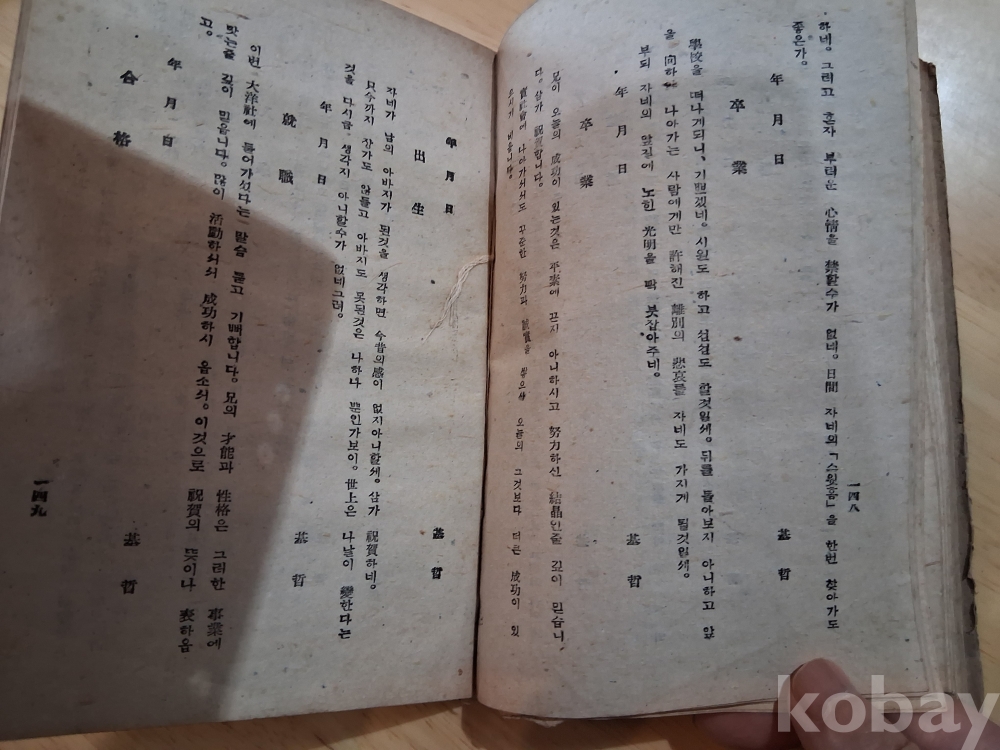 하네。그리고 혼자 부러운 心情을 禁할수가 없네。日間 자네의「스윗홈」을 한번 찾아가도
좋은가。
年 月 日
基 哲
卒 業
學校을 떠나게되니、기쁘겠네。시원도 하고 섭섭도 할것일세。뒤를 돌아보지 아니하고 앞
을 向하여 나아가는 사람에게만 許해진 離別의 悲哀를 자네도 가지게 될것일세。
부되 자네의 앞길에 노힌 光明을 꽉 붓잡아주네。
年 月 日
基 哲
卒 業
兄이 오늘의 成功이 있는것은 平素에 끈지 아니하시고 努力하신 結晶인줄 깊이 믿습니
다。삼가 祝賀합니다。
實社會에 나아가서도 꾸준한 努力과 誠實을 쌓으사 오늘의 그것보다 더큰 成功이 있
으시기 비옵니다。
一四八
年 月 日
基 哲
出 生
자네가 남의 아바지가 된것을 생각하면 今昔의感이 없지아니할세。삼가 祝賀하네。
只今까지 장가도 않들고 아바지도 못된것은 나하나 뿐인가보이。世上은 나날이 變한다는
것을 다시금 생각지 아니할수가 없네그려。
年 月 日
基 哲
就 職
이번 大洋社에 들어가섯다는 말슴 듣고 기뻐합니다。兄의 才能과 性格은 그러한 事業에
맛는줄 깊이 믿읍니다。많이 活動하쇠서 成功하시 옵소서。이것으로 祝賀의 뜻이나 表하옴
고。
年 月 日
基 哲
合 格
一四九
kobay